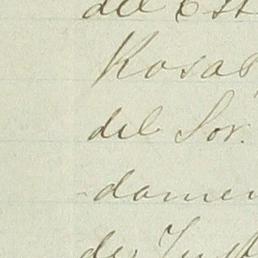 del Est
Rosa
del Sor.
damen
de Just